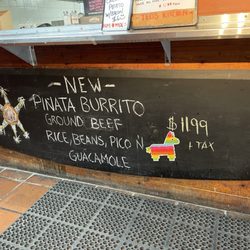 - NEW -
PIÑATA BURRITO
GROUND BEEF
RICE, BEANS, PICO N
GUACAMOLE
$11.99
+ TAX